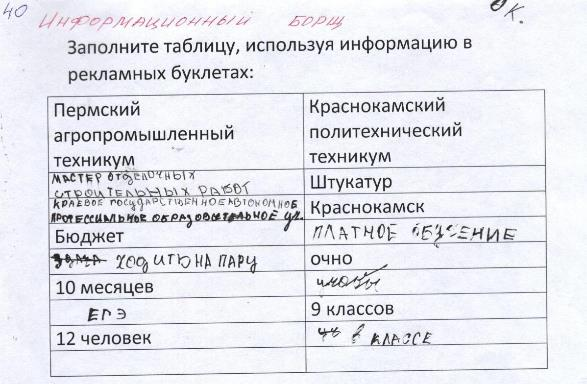 40
ИНФОРМАЦИОННЫЙ БОРЩ
К.
Заполните таблицу, используя информацию в
рекламных буклетах:
Пермский
агропромышленный
техникум
Краснокамский
политехнический
техникум
МАСТЕР ОТДЕЛОЧНЫХ
СТРОИТЕЛЬНЫХ РАБОТ
Штукатур
КРАЕВОЕ ГОСУДАРСТВЕННОЕ АВТОНОМНОЕ
ПРОФЕССИАЛЬНОЕ ОБРАЗОВАТЕЛЬНОЕ УЧ.
Краснокамск
Бюджет
ПЛАТНОЕ
ХОДИТЬ НА ПАРУ
очно
10 месяцев
ЕГЭ
9 классов
12 человек
8 КЛАССЕ